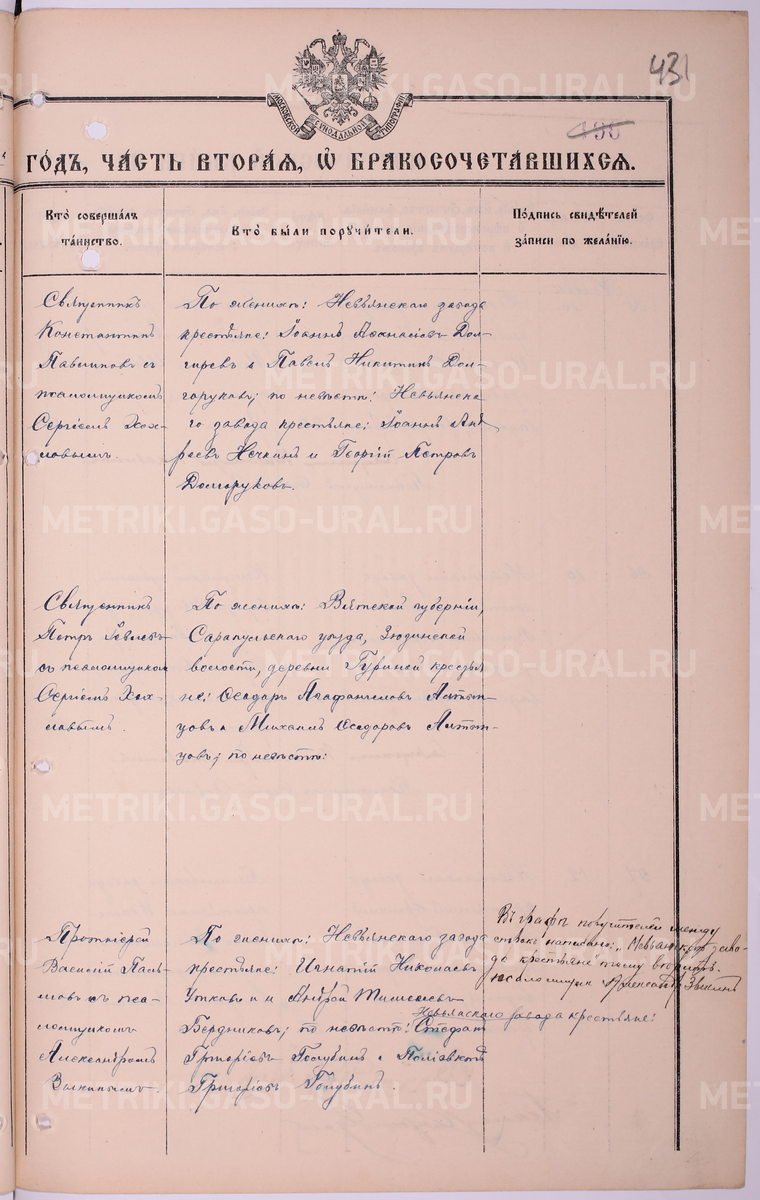 431
195
МОСКОВСКОЙ СѴНОДАЛЬНОЙ ТИПОГРАФІИ
ГОДЪ, ЧАСТЬ ВТОРАЯ, Ѡ БРАКОСОЧЕТАВШИХСЯ.
Кто совершалъ таинство.
Кто были поручители.
Подпись свидѣтелей записи по желанію.
Священникъ
Константинъ
съ
псаломщикомъ
Сергіемъ Хох-
ловымъ.
По женихѣ: Невьянскаго завода
крестьяне: Іоаннъ Аѳанасіевъ Дол-
и Павелъ Никитинъ Дол-
горуковъ; по невѣстѣ: Невьянска-
го завода крестьяне: Іоаннъ Анд
реевъ Нечкинъ и Георгій Петровъ
Долгоруковъ.
Священникъ
Петръ Іевлевъ
съ псаломщикомъ
Сергіемъ Хох-
ловымъ.
По женихѣ: Вятской губерніи,
Сарапульскаго уѣзда, Зюдинской
волости, деревни Гуриной крестья
не: Ѳеодоръ Агафангеловъ
и Михаилъ Ѳеодоровъ
по невѣстѣ:
Протоіерей
Василій
съ пса-
ломщикомъ
Александромъ
По женихѣ: Невьянскаго завода
крестьяне: Игнатій Николаевъ
Утковъ и Андрей Тимоѳеевъ
Невьянскаго завода крестьяне:
Бердниковъ; по невѣстѣ: Стефанъ
Григоріевъ Голубинъ и
Григоріевъ Голубинъ.
Въ графѣ поручителей между
строкъ написано: „Невьянскаго заво-
да крестьяне" тому вѣрить.
псаломщикъ Александръ
METRIKI.GASO-URAL.RU